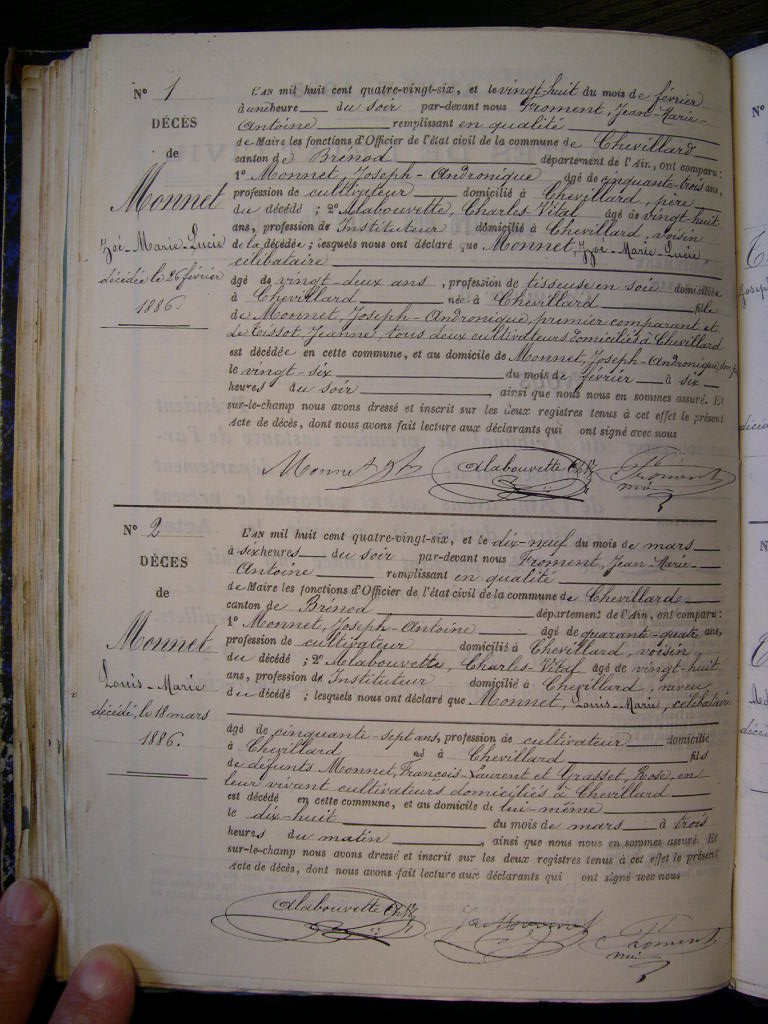 N° 1
DÉCÈS
de
Monnet
Zoé-Marie-Lucie
décédée, le 26 février
1886.
L'AN mil huit cent quatre-vingt-six, et le vingt-huit du mois de février
à une heure du soir par-devant nous Froment, Jean-Marie-
Antoine remplissant en qualité
de Maire les fonctions d'Officier de l'état civil de la commune de Chevillard
canton de Brénod département de l'Ain, ont comparu:
1° Monnet, Joseph-Andronique âgé de cinquante-trois ans,
profession de cultivateur domicilié à Chevillard, père
du décédé; 2° Alabouvette, Charles-Vital âgé de vingt-huit
ans, profession de Instituteur domicilié à Chevillard, voisin
de la décédée; lesquels nous ont déclaré que Monnet, Zoé-Marie-Lucie,
célibataire
âgé de vingt-deux ans, profession de tisseuse en soie domiciliée
à Chevillard née à Chevillard fille
de Monnet, Joseph-Andronique, premier comparant et
de Tissot Jeanne, tous deux cultivateurs domiciliés à Chevillard
est décédée en cette commune, et au domicile de Monnet, Joseph-Andronique, son père
le vingt-six du mois de février à six
heures du soir, ainsi que nous nous en sommes assuré. Et
sur-le-champ nous avons dressé et inscrit sur les deux registres tenus à cet effet le présent
Acte de décès, dont nous avons fait lecture aux déclarants qui ont signé avec nous
Monnet Alabouvette Ch. Froment
N° 2
DÉCÈS
de
Monnet
Louis-Marie
décédé, le 18 mars
1886.
L'AN mil huit cent quatre-vingt-six, et le dix-neuf du mois de mars
à six heures du soir par-devant nous Froment, Jean-Marie-
Antoine remplissant en qualité
de Maire les fonctions d'Officier de l'état civil de la commune de Chevillard
canton de Brénod département de l'Ain, ont comparu:
1° Monnet, Joseph-Antoine âgé de quarante-quatre ans,
profession de cultivateur domicilié à Chevillard, voisin
du décédé; 2° Alabouvette, Charles-Vital âgé de vingt-huit
ans, profession de Instituteur domicilié à Chevillard, neveu
du décédé; lesquels nous ont déclaré que Monnet, Louis-Marie, célibataire
âgé de cinquante-sept ans, profession de cultivateur domicilié
à Chevillard né à Chevillard fils
de défunts Monnet, François-Laurent et Grasset, Rose, en
leur vivant cultivateurs domiciliés à Chevillard
est décédé en cette commune, et au domicile de lui-même
le dix-huit du mois de mars à trois
heures du matin, ainsi que nous nous en sommes assuré. Et
sur-le-champ nous avons dressé et inscrit sur les deux registres tenus à cet effet le présent
Acte de décès, dont nous avons fait lecture aux déclarants qui ont signé avec nous
Alabouvette Ch. Froment